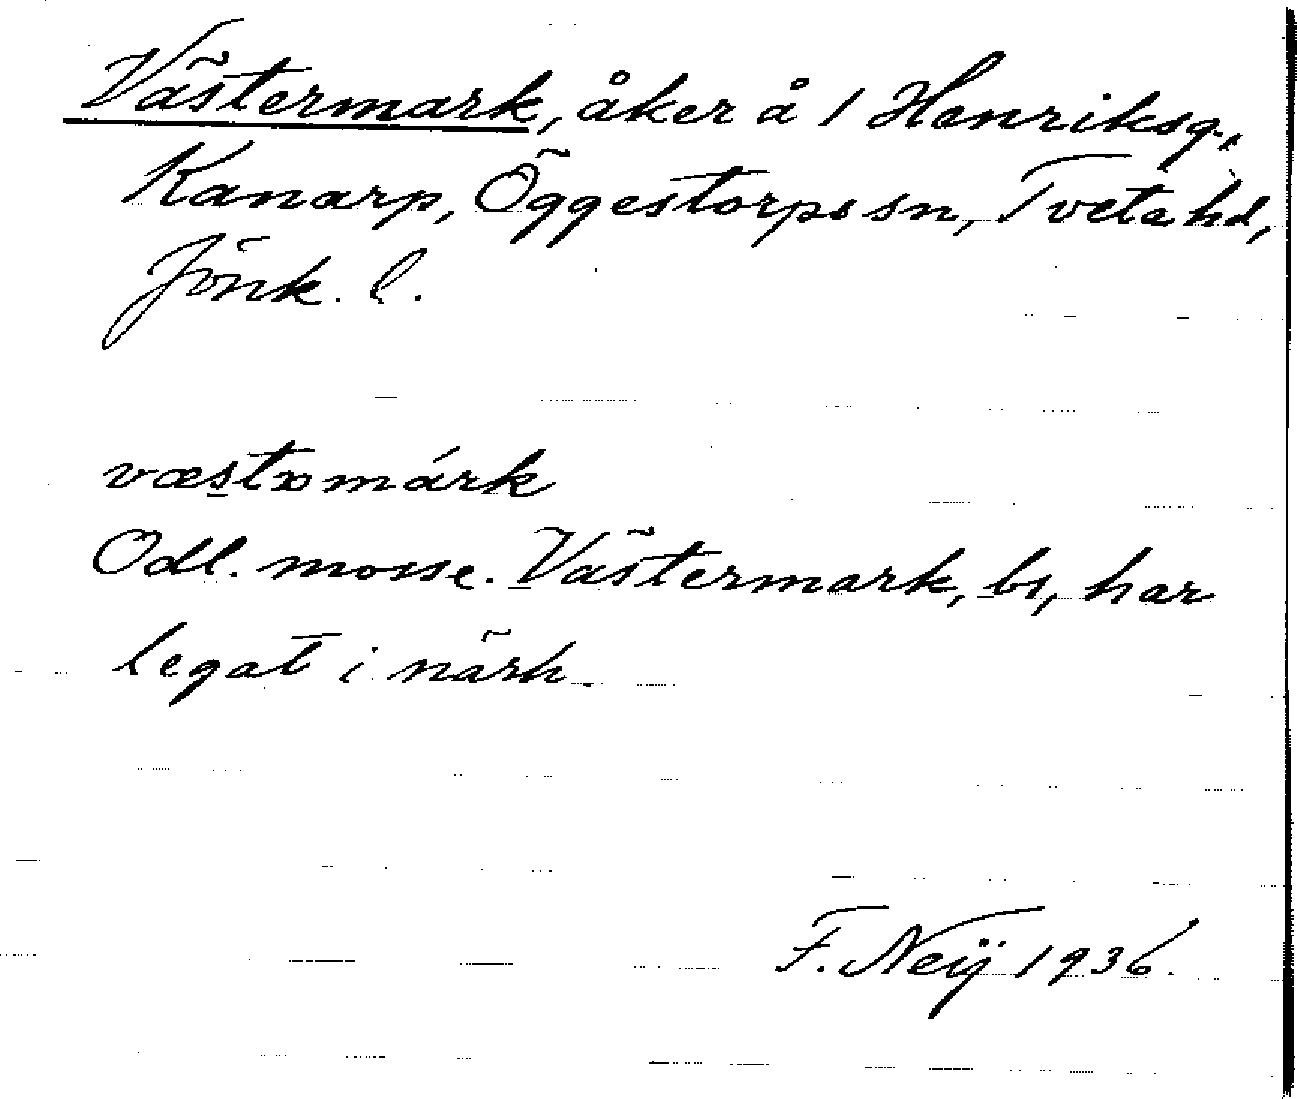 Västermark, åker å 1 Henriksg.,
Kanarp, Öggestorps sn, Tveta hd,
Jönk. l.
væstɒmárk
Odl. mosse. Västermark, bs, har
legat i närh.
F. Neij 1936.